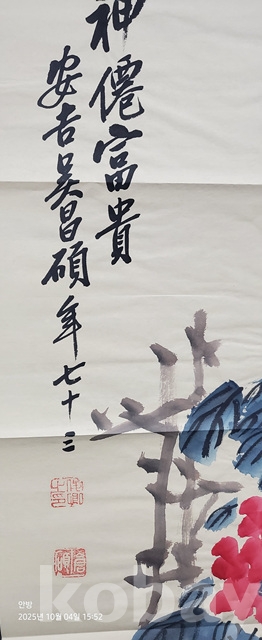 神僊富貴
安吉吳昌碩年七十三
안방
2025년 10월 04일 15:52
kobay